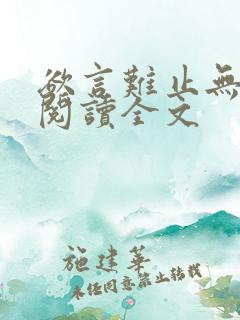 欲言難止無
閱讀全文
施建華
未經同意禁止轉載